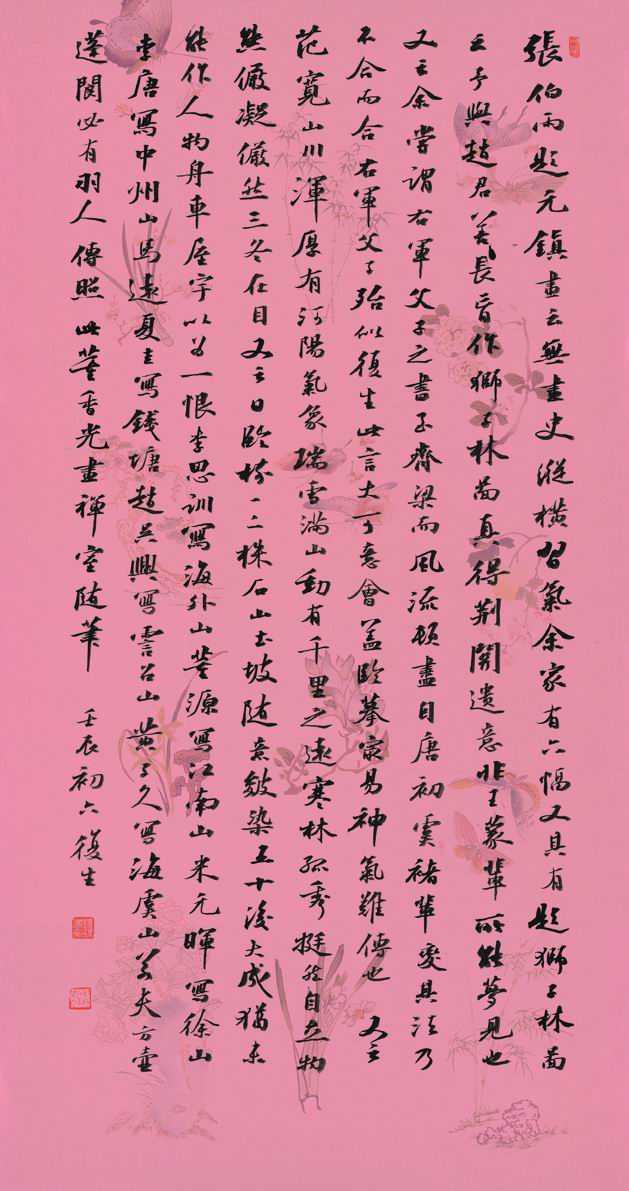 張伯雨題元鎮畫云無畫史縱橫習氣余家有六幅又其有題獅子林啚
云予與趙君善長旨作獅子林啚真得荆關遺意非王蒙輩所能夢見也
又云余嘗謂右軍父子之書子齊梁而風流頓盡自唐初虞褚輩變其法乃
不合而合右軍父子殆似復生此言大可意會蓋臨摹家易神氣難傳也又云
范寬山川渾厚有河陽氣象瑞雪滿山動有千里之遠寒林孤秀挺然自立物
態儼凝儼然三冬在目又云日臨樹一二株石山土坡隨意皴染五十後大成猶未
能作人物舟車屋宇以為一恨李思訓寫海外山董源寫江南山米元暉寫徐山
李唐寫中州山馬遠夏圭寫錢塘趙吳興寫霅苕山黃子久寫海虞山若夫方壺
蓬閬必有羽人傳照此董香光畫禪室隨筆
壬辰初六復生